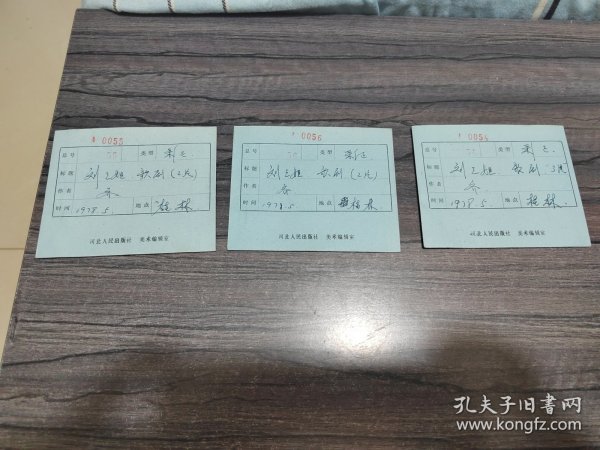 0055
总号 类型
标题 刘三姐 歌剧(2张)
作者 乔
时间 1978.5. 地点 桂林
河北人民出版社 美术编辑室
0056
总号 类型
标题 刘三姐 歌剧(2张)
作者 乔
时间 1978.5. 地点 桂林
河北人民出版社 美术编辑室
总号 类型
标题 刘三姐 歌剧
作者 乔
时间 1978.5. 地点 桂林.
河北人民出版社 美术编辑室
孔夫子旧书网
www.kongfz.com